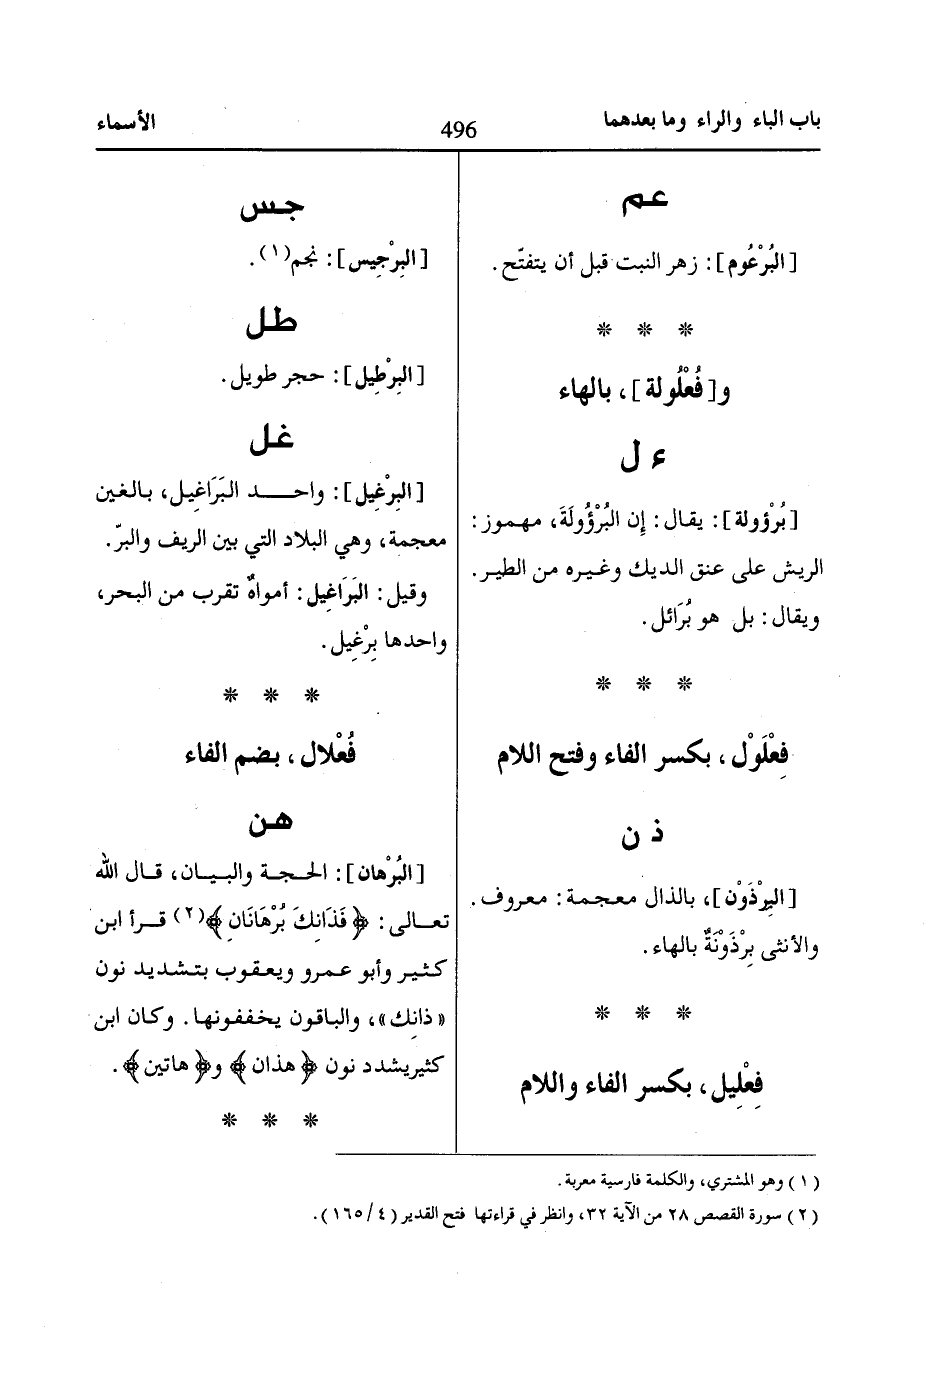 باب الباء والراء وما بعدهما
496
الأسماء
عم
[البُرْعُوم]: زهر النبت قبل أن يتفتّح.
* * *
و[فُعْلُولة]، بالهاء
ء ل
[بُرْؤولة]: يقال: إن البُرْؤُولَةَ، مهموز:
الريش على عنق الديك وغيره من الطير.
ويقال: بل هو بُرَائل.
* * *
فِعْلَوْل، بكسر الفاء وفتح اللام
ذ ن
[البِرْذَوْن]، بالذال معجمة: معروف.
والأنثى بِرْذَوْنَةٌ بالهاء.
* * *
فِعْلِيل، بكسر الفاء واللام
جس
[البِرْجِيس]: نجم(١).
طل
[البِرْطِيل]: حجر طويل.
غل
[البِرْغيل]: واحد البَرَاغِيل، بالغين
معجمة، وهي البلاد التي بين الريف والبرّ.
وقيل: البَرَاغيل: أمواهٌ تقرب من البحر،
واحدها بِرْغِيل.
* * *
فُعْلال، بضم الفاء
هن
[البُرْهان]: الحجة والبيان، قال الله
تعالى: ﴿فَذَانِكَ بُرْهَانَانِ﴾(٢) قرأ ابن
كثير وأبو عمرو ويعقوب بتشديد نون
«ذانِك»، والباقون يخففونها. وكان ابن
كثيريشدد نون ﴿هذان﴾ و﴿هاتين﴾.
* * *
(١) وهو المشتري، والكلمة فارسية معربة.
(٢) سورة القصص ٢٨ من الآية ٣٢، وانظر في قراءتها فتح القدير (٤/١٦٥).